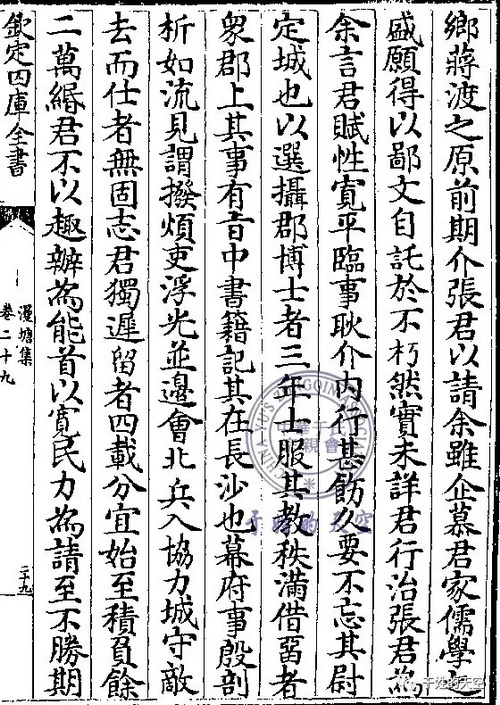 鄉蔣渡之原前期介張君以請余雖企慕君家儒學之
盛願得以鄙文自託於不朽然實未詳君行治張君為
余言君賦性寬平臨事耿介内行甚飭久要不忘其尉
定城也以選攝郡博士者三年士服其教秩滿借留者
衆郡上其事有旨中書籍記其在長沙也幕府事殷剖
析如流見謂撥煩吏浮光並邊會北兵入協力城守敵
去而仕者無固志君獨遲留者四載分宜始至積負餘
二萬緡君不以趣辦為能首以寛民力為請至不勝期
欽定四庫全書
漫塘集
卷二十九
二十九
于姓的天空
于姓的天空